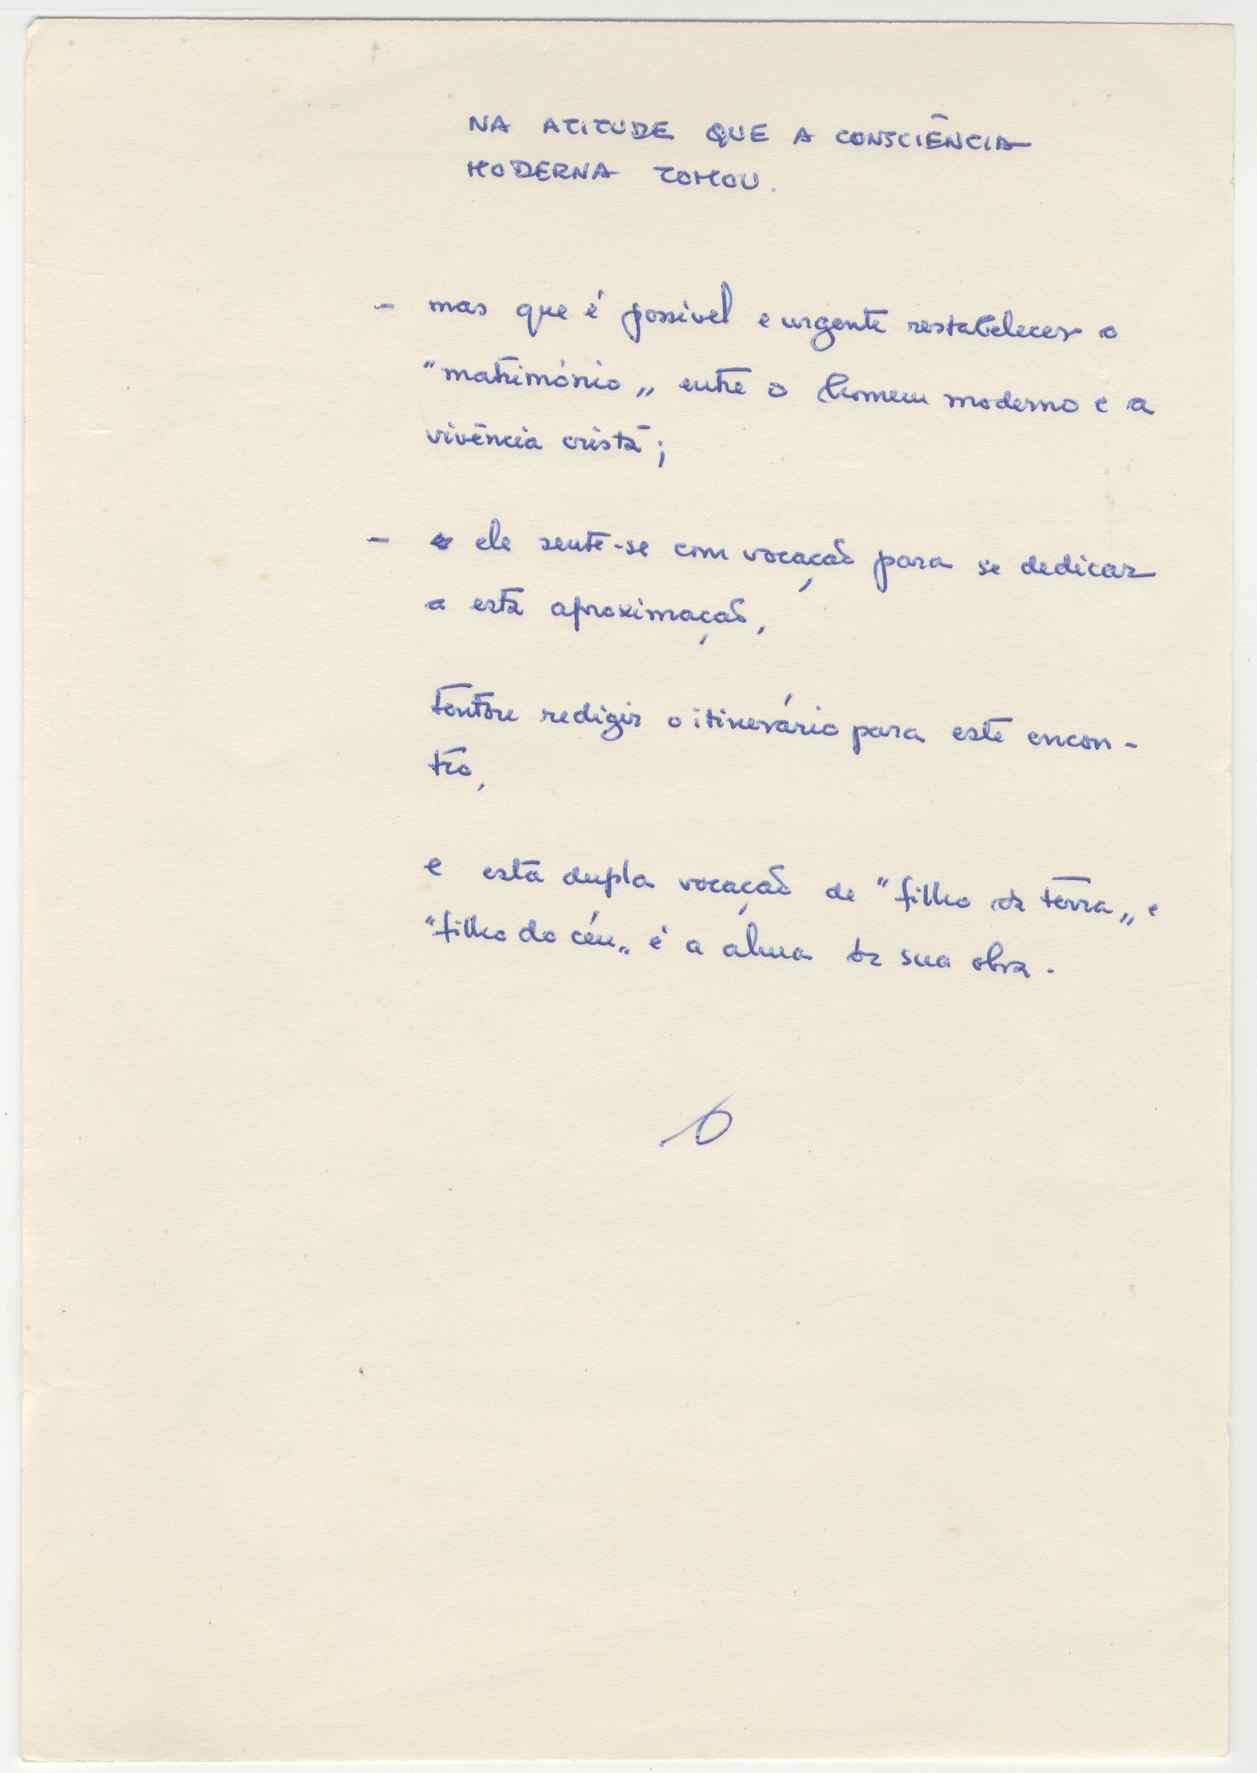 NA ATITUDE QUE A CONSCIÊNCIA
MODERNA TOMOU.
- mas que é possível e urgente restabelecer o
"matrimónio" entre o homem moderno e a
vivência cristã;
- ele sente-se com vocação para se dedicar
a esta aproximação,
tentou redigir o itinerário para este encon-
tro,
e esta dupla vocação de "filho da terra" e
"filho do céu" é a alma da sua obra.